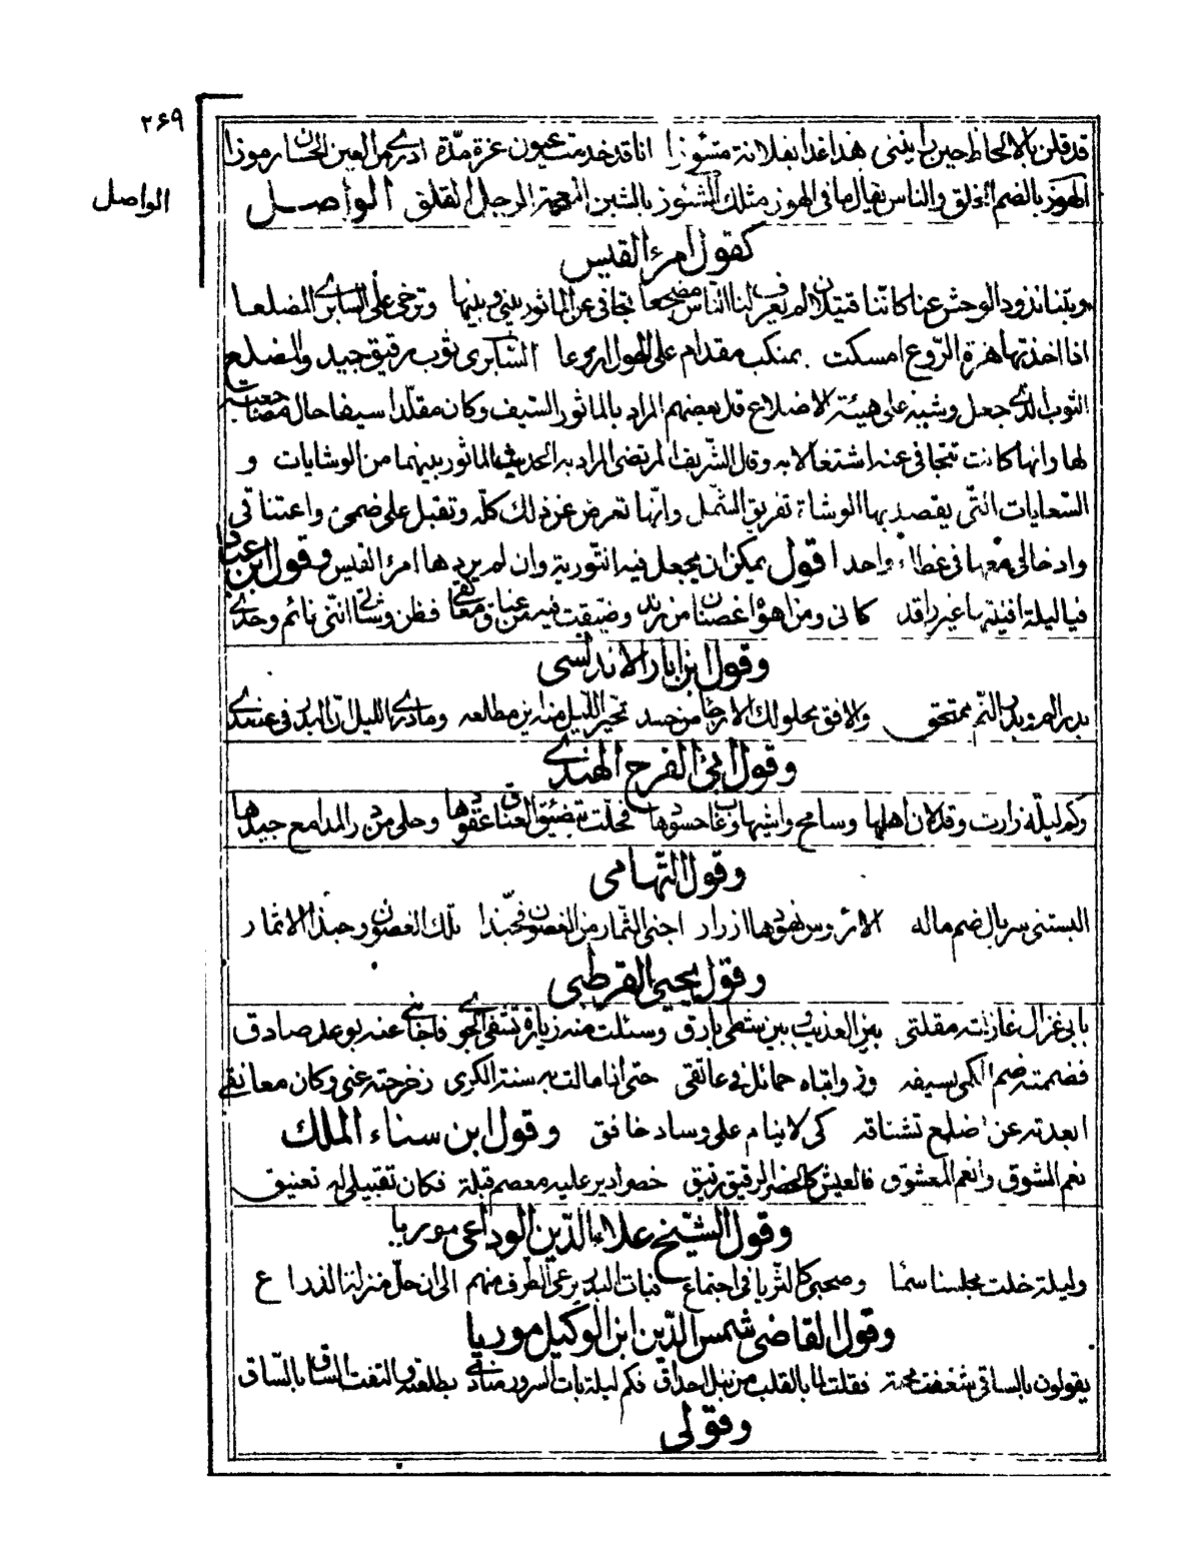 ۲۶۹
الواصل
قد قلن بالالحاظ حين راينني هذا غدا بفلانة انا قد خدمت عيون عزة مدّة ادرى من العين الحسان رموزا
الهوز بالضم الخلق والناس يقال ما فى الهوز مثلك الشئوز بالشين المعجمة الرجل القلق الواصل
كقول امرء القيس
وبتنا نذود الوحش عنا كاننا قتيلان لم يعرف لنا الناس مضجعا تجافى عن الماثور بينى وبينها وترخى على السابرى المضلعا
اذا اخذتها هزة الرّوع امسكت بمنكب مقدام على الهول اروعا السّابرى ثوب رقيق جيد والمضلع
الثوب الذى جعل وشيه على هيئة الاضلاع قال بعضهم المراد بالماثور السّيف وكان مقلّدا سيفا حال مضاجعته
لها وانها كانت تتجافى عنه اشتغالا به وقال الشّريف المرتضى المراد به الحديث الماثور بينهما من الوشايات و
السّعايات التّى يقصد بها الوشاة تفريق الشّمل وانّها تعرض عن ذلك كلّه وتقبل على ضمى واعتناقى
وادخالى معها فى غطاء واحد اقول يمكن ان يجعل فيه التّورية وان لم يردها امرء القيس وقول ابن عباد
فيا ليلة افنيتها غير راقد كانى ومن اهوا غصنان من رند وضيقت فيه من عناق معانقى فظن وشاتى اننى نائم وحدى
وقول ابن ابار الاندلسى
بدر التّم ممتحق والافق محلولك الارجاء من حسد تحير الليل منه اين مطالعه وما درى الليل ان البدر فى عضدى
وقول ابى الفرج الهندى
وكم ليلة زارت وقد لان اهلها وسامح واشيها وغاب حسودها فحلّت بتضييق العناق عقودها وحلى من در المدامع جيدها
وقول التّهامى
البستنى سربال ضم ماله الا رؤس نهودها ازرار اجنى الثّمار من الغصون فحبّذا تلك الغصون وحبذا الاثمار
وقول يحيى القرطبى
بابى غزال غازلته مقلتى بين العذيب وبين شطى بارق وسئلت منه زيارة تشفى الجوى فاجابنى عنه بوعد صادق
فضممته ضم الكمى لسيفه وذوابتاه حمائل فى عاتقى حتى اذا مالت به سنة الكرى زحزحته عنى وكان معانقى
ابعدته عن اضلع تشتاقه كى لا ينام على وساد خافق وقول ابن سناء الملك
نعم المشوق وانعم المعشوق فالعيش كالخصر الرقيق رقيق خصر ادير عليه معصم قبلة فكان تقبيلى له تعنيق
وقول الشّيخ علاء الدّين الوداعى موريا
وليلة خلت مجلسنا سمّا وصحبى كالثريا فى اجتماع فبات البدر يرعى الطّرف منهم الى ان حلّ منزلنا الذراع
وقول القاضى شمس الدّين ابن الوكيل موريا
يقولون بالساقى شغفت محبة فقلت لما بالقلب من نبل احداق فكم ليلة بات السرور منادمى بطلعته والتفت السّاق بالسّاق
وقولى